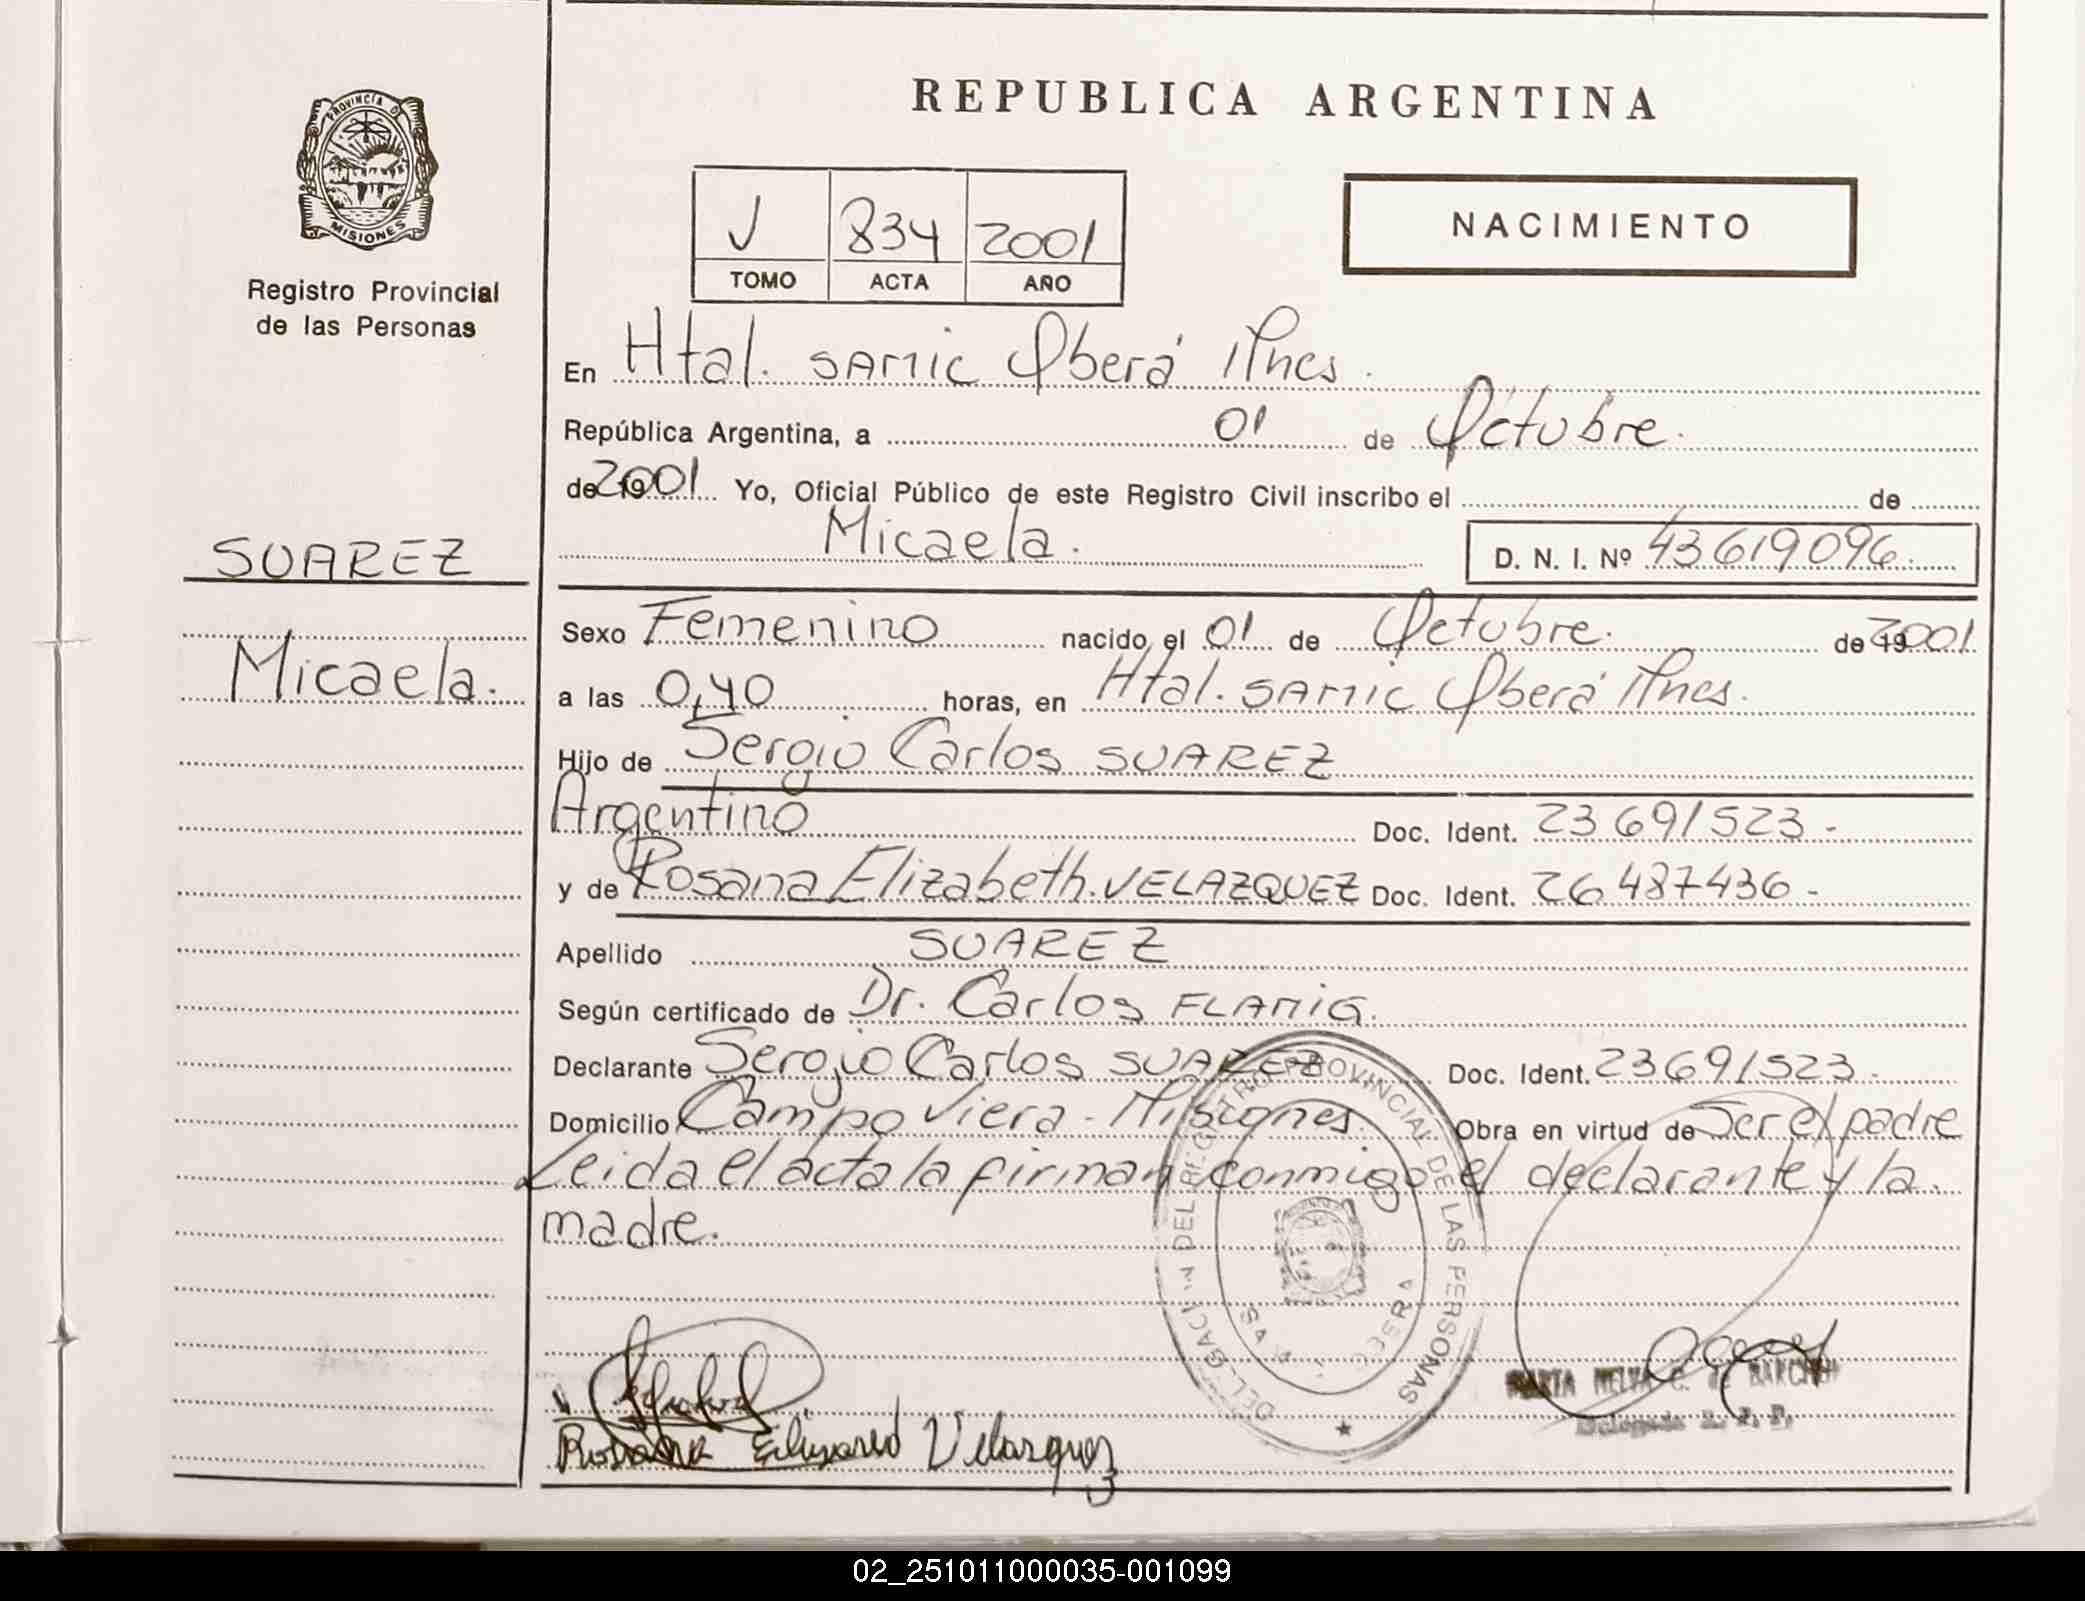 REPUBLICA ARGENTINA
PROVINCIA DE
MISIONES
Registro Provincial
de las Personas
V 834 2001
TOMO ACTA AÑO
NACIMIENTO
En Htal. SAMIC Oberá Mnes.
República Argentina, a 01 de Octubre.
de 2001 Yo, Oficial Público de este Registro Civil inscribo el de
Micaela. D. N. I. Nº 43619096.
SUAREZ
Micaela.
Sexo Femenino nacido el 01 de Octubre. de 2001
a las 0,40 horas, en Htal. SAMIC Oberá Mnes.
Hijo de Sergio Carlos SUAREZ
Argentino Doc. Ident. 23691523-
y de Rosana Elizabeth. VELAZQUEZ Doc. Ident. 26487436-
Apellido SUAREZ
Según certificado de Dr. Carlos FLAMIG.
Declarante Sergio Carlos SUAREZ Doc. Ident. 23691523-
Domicilio Campo Viera - Misiones. Obra en virtud de Ser el padre
Leida el acta la firman conmigo el declarante y la
madre.
DELEGACION DEL REGISTRO PROVINCIAL DE LAS PERSONAS
OBERA
Velazquez
Delegada R. P. P.
02_251011000035-001099